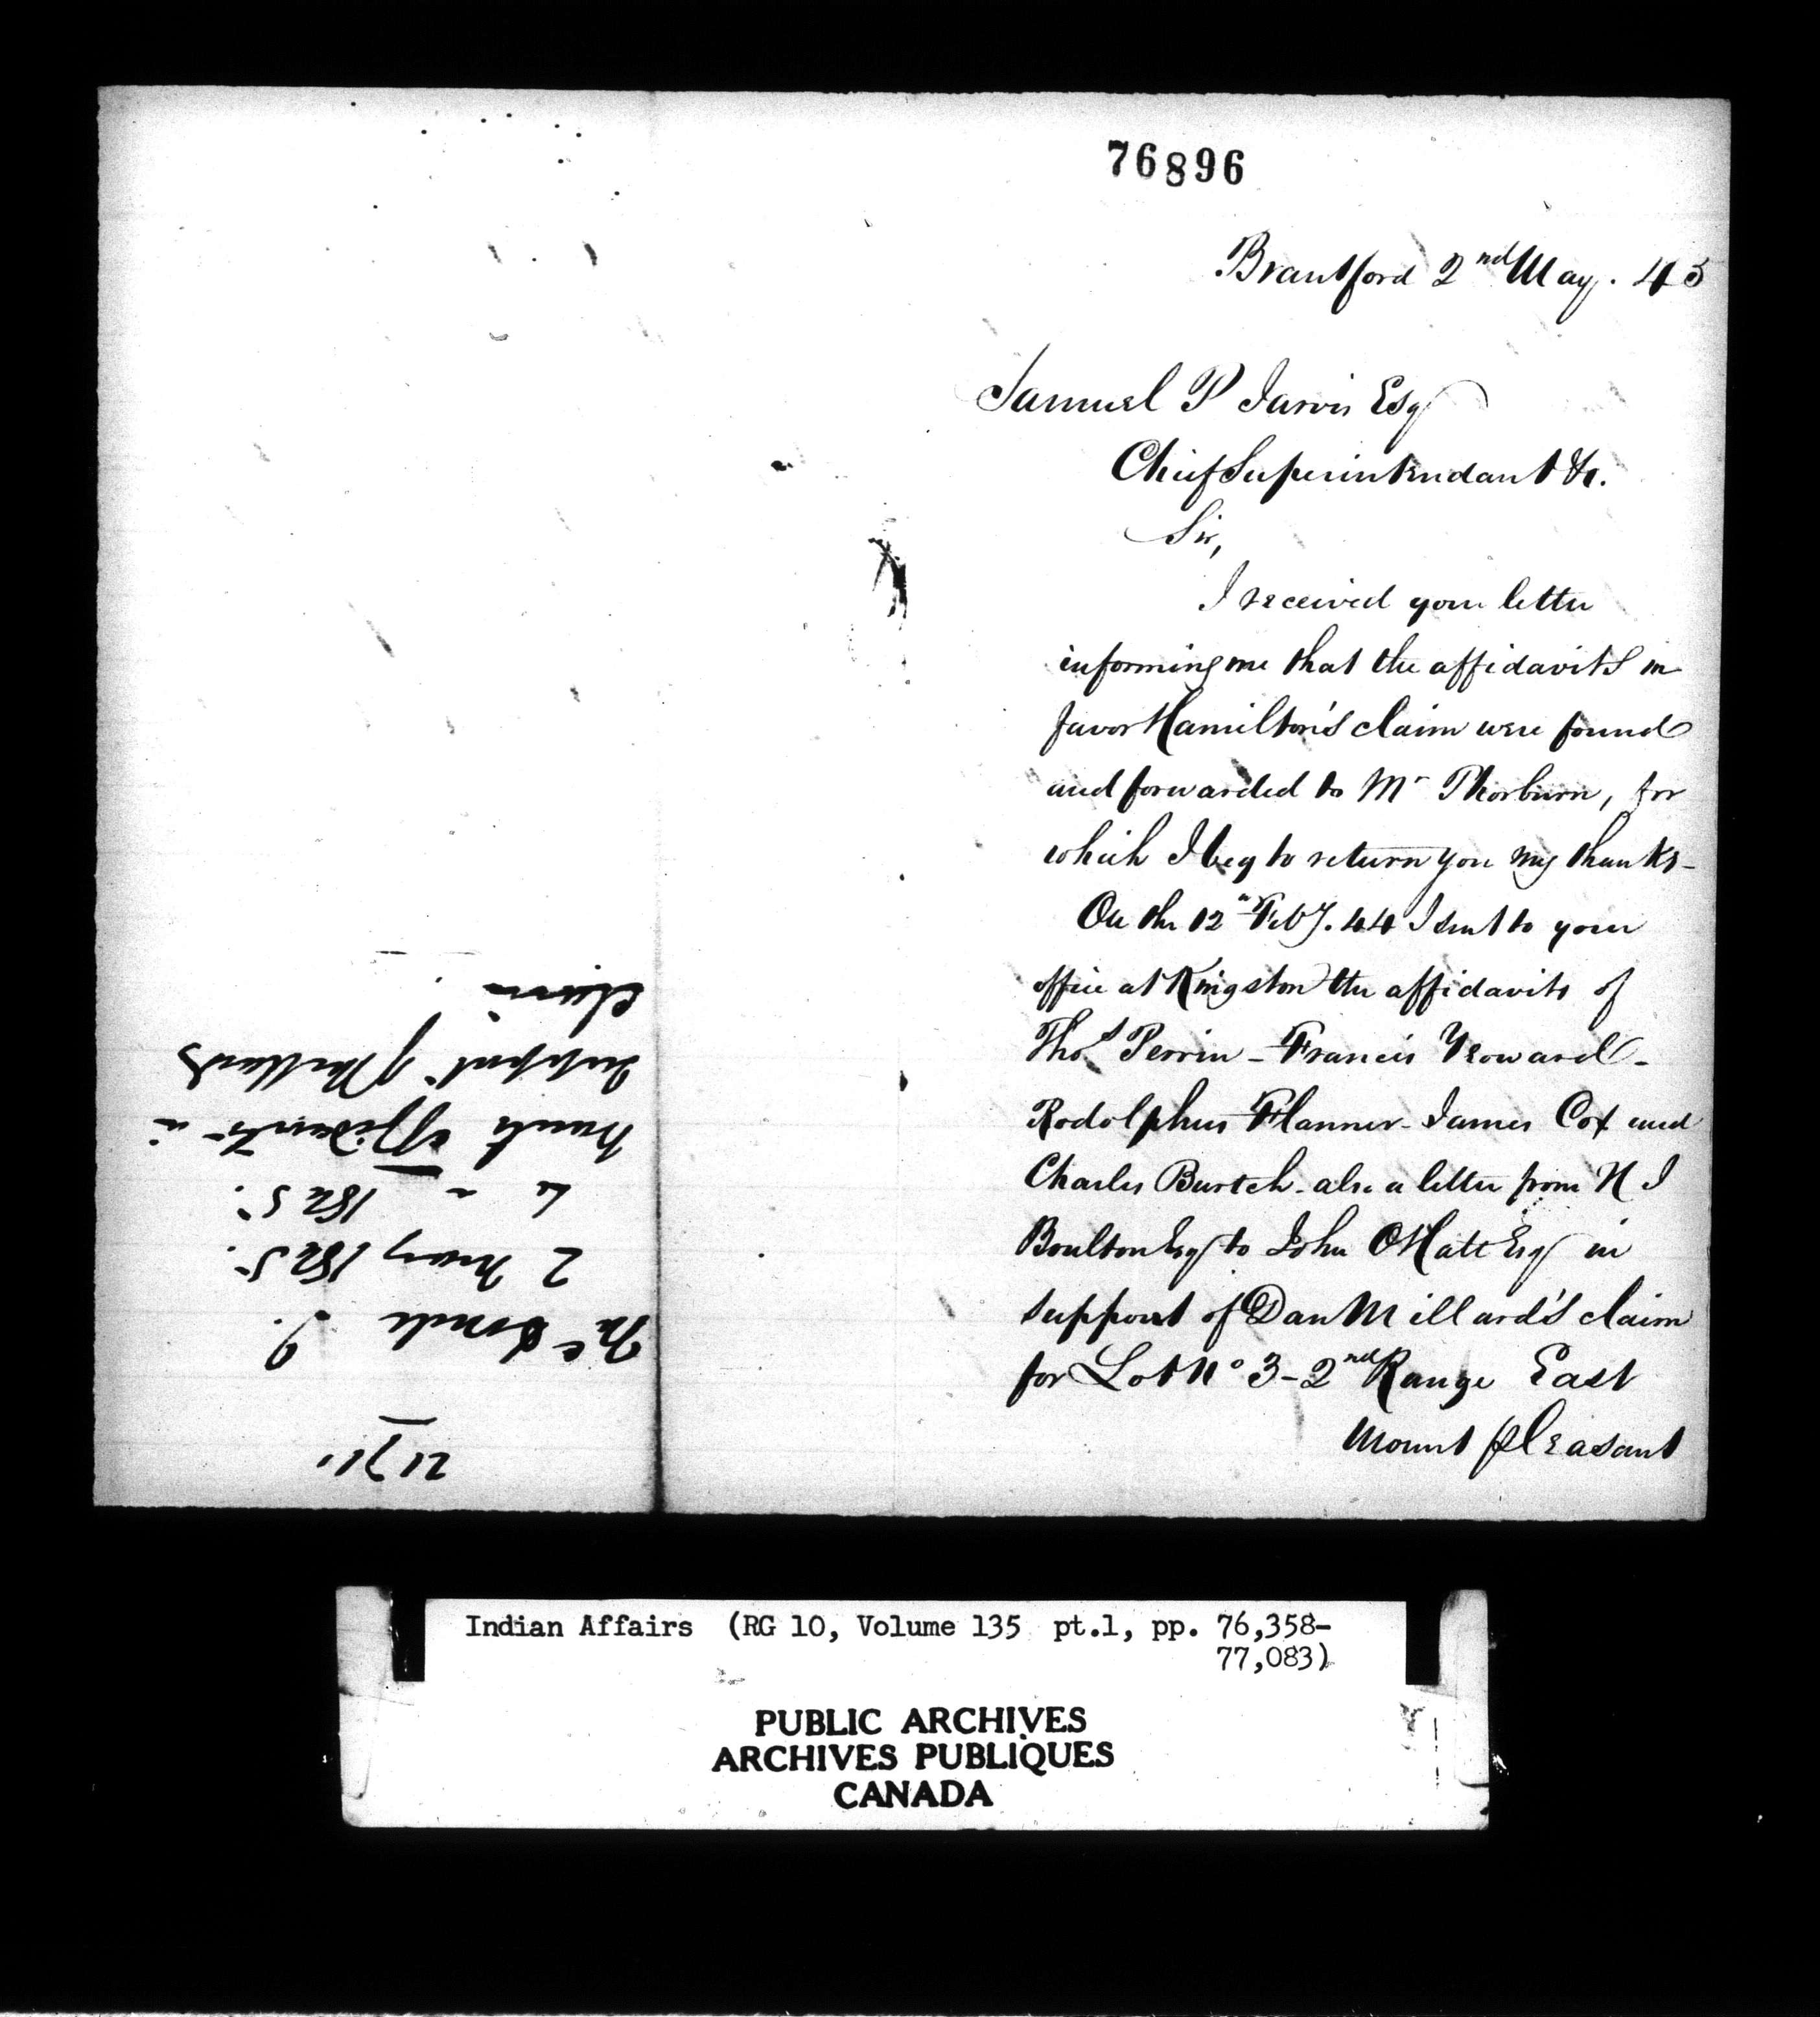 76896
Brantford 2nd May. 45
Samuel P Jarvis Esq
Chief Superintendant &c.
Sir,
I received your letter
informing me that the affidavits in
favor Hamilton's claim were found
and forwarded to Mr Thorburn, for
which I beg to return you my thanks-
On the 12th Feby. 44 I sent to your
office at Kingston the affidavits of
Thos Perrin - Francis Yeoward -
Rodolphus Flanner - James Cox and
Charles Burtch - also a letter from H J
Boulton Esq to John O Hatt Esq in
support of Dan Millard's claim
for Lot No 3 - 2nd Range East
Mount pleasant
2 May 1845.
1845.
affidavits in
support of Millards
claim
Indian Affairs (RG 10, Volume 135 pt.1, pp. 76,358-
77,083)
PUBLIC ARCHIVES
ARCHIVES PUBLIQUES
CANADA